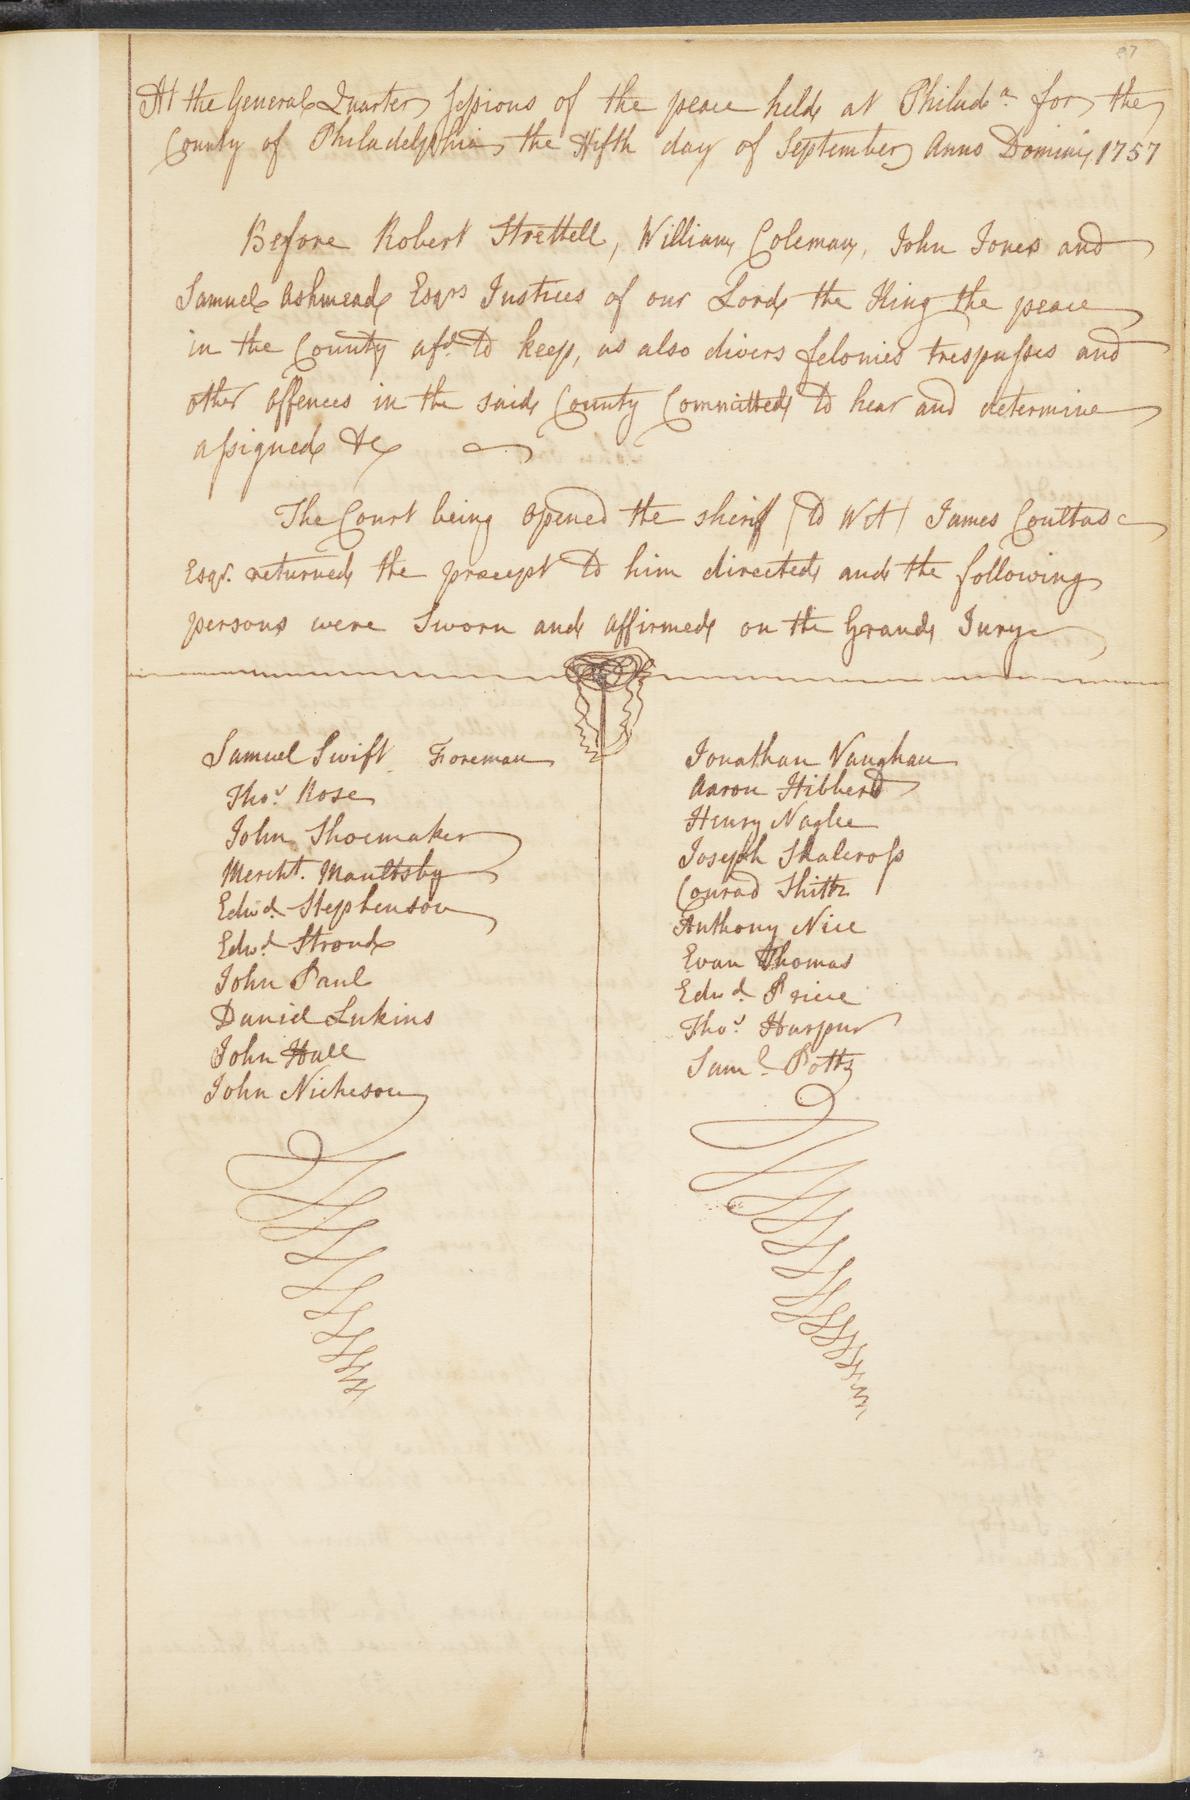 87
At the General Quarter Sessions of the peace held at Philada. for the
County of Philadelphia the Fifth day of September Anno Domini 1757
Before Robert Strettell, William Coleman, John Jones and
Samuel Ashmead Esqrs Justices of our Lord the King the peace
in the County afd. to keep, as also divers felonies trespasses and
other offences in the said County Committed to hear and determine
assigned &c
The Court being opened the sherif (to Wit) James Coultas
Esqr. returned the precept to him directed and the following
persons were Sworn and affirmed on the Grand Jury
Samuel Swift Foreman
Thos. Rose
John Shoemaker
Mercht. Maultsby
Edwd. Stephenson
Edwd. Stroud
John Paul
Daniel Lukins
John Hall
John Nicheson
Jonathan Vaughan
Aaron Hibberd
Henry Naglee
Joseph Shalcross
Conrad Shittz
Anthony Nice
Evan Thomas
Edwd. Price
Thos. Harper
Saml. Potts